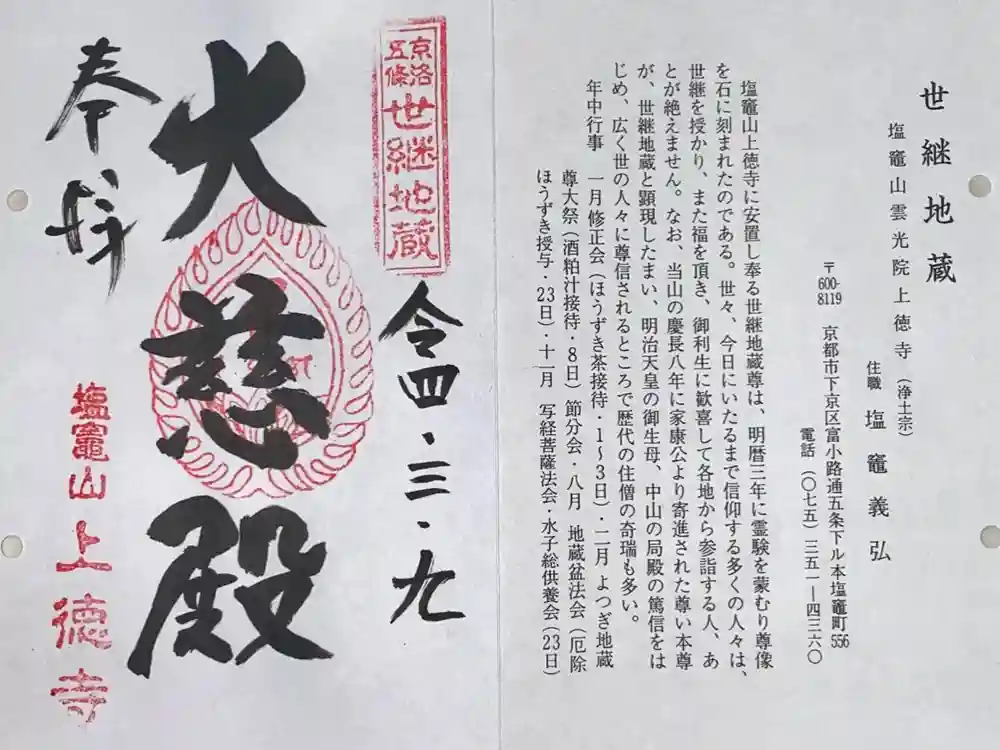 世継地蔵
塩竈山雲光院上徳寺（浄土宗）
住職 塩竈義弘
〒600-8119 京都市下京区富小路通五条下ル本塩竈町556
電話（〇七五）三五一―四三六〇
塩竈山上徳寺に安置し奉る世継地蔵尊は、明暦三年に霊験を蒙むり尊像
を石に刻まれたのである。世々、今日にいたるまで信仰する多くの人々は、
世継を授かり、また福を頂き、御利生に歓喜して各地から参詣する人、あ
とが絶えません。なお、当山の慶長八年に家康公より寄進された尊い本尊
が、世継地蔵と顕現したまい、明治天皇の御生母、中山の局殿の篤信をは
じめ、広く世の人々に尊信されるところで歴代の住僧の奇瑞も多い。
年中行事 一月修正会（ほうずき茶接待・1～3日）・二月 よつぎ地蔵
尊大祭（酒粕汁接待・8日）節分会・八月 地蔵盆法会（厄除
ほうずき授与・23日）・十一月 写経菩薩法会・水子総供養会（23日）
京洛
五條
世継地蔵
令四、三・九
大慈殿
奉拝
塩竈山上徳寺